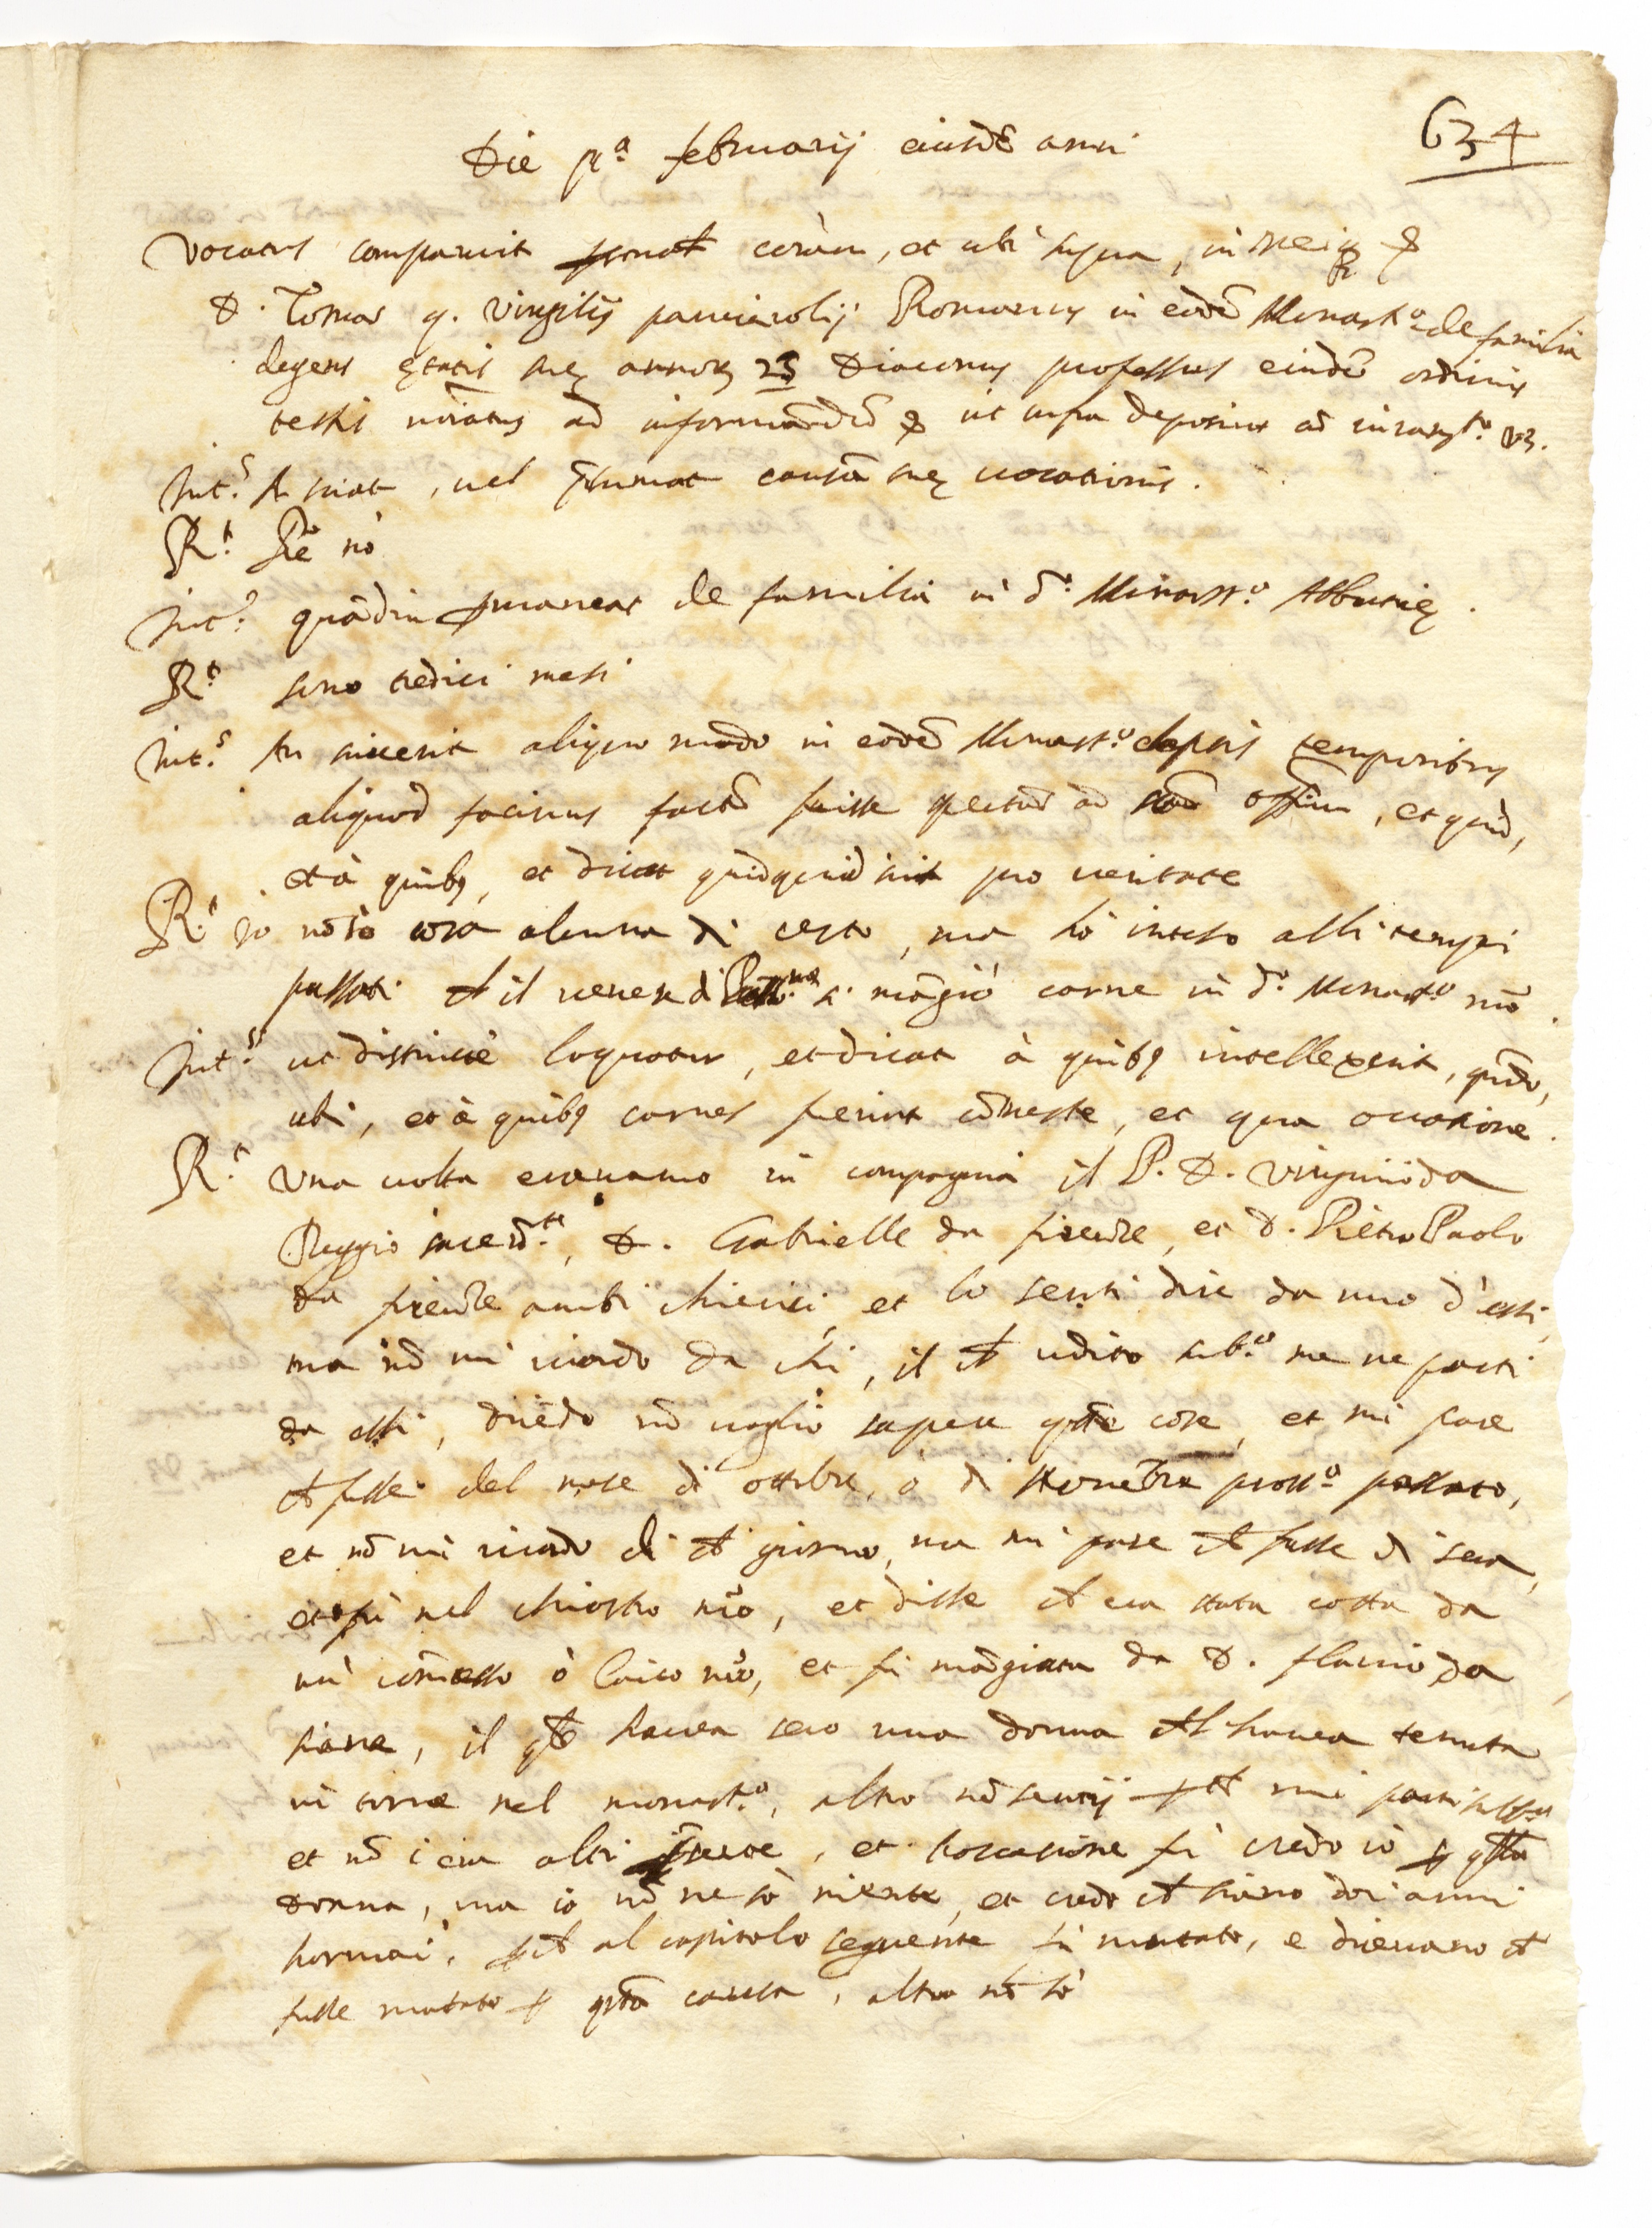 634
Die p.ª februarij eiusdẽ anni
Vocatus comparuit coràm, et ubi supra, in mei
D. Tomas q. Virgilij panciroli Romanus in eodẽ Monast.º de familia
degens ętatis suę annoꝝ 25 Diaconus professus eiusdẽ ordinis
testis nõiatus ad informandũ ut infra deposuit ad
Int.s An sciat, vel pñumat causã suę vocationis.
R.t Pr̃e nò
Int.s quãdiu p̱maneat de familia in d.º Monast.º Abbatię.
R.t sono tredici mesi
Int.s An sciverit aliquo modo in eodẽ Monast.º elapsis temporibus
aliquod facinus factũ fuisse spectãs ad officiũ, et quid,
et à quibꝯ, et dicat quidquid scit pro veritate
R.t io nõ sò cosa alcuna di certo, ma hò inteso alli tempi
passati ch̃ il venerdi si mãgiò carne in d.º Monast.º nr̃o.
Int.s ut distinctè loquatur, et dicat à quibꝯ intellexerit, quãdo,
ubi, et à quibꝯ carnes fuerint cõmeste, et qua occasione.
R.t Una volta eravamo in compagnia il P. D. Virginio da
Reggio sacerd.te, D. Gabrielle da firenze, et D. Pietro Paolo
da firenze ambi chierici, et lo senti dire da uno d'essi,
ma nõ mi ricordo da chi, il ch̃ udito sub.º me ne parti
da essi, dicẽdo nõ voglio sapere q̃ste cose, et mi pare
ch̃ fusse del mese di ottobre, ò di Novẽbre pross.º passato,
et nõ mi ricordo di ch̃ giorno, ma mi pare ch̃ fusse di sera,
et fù nel chiostro nr̃o, et disse ch̃ era stata cotta da
un cõmesso ò laico nr̃o, et fù mãgiata da D. flavio da
siena, il q̃le haveva seco una donna ch̃ l'haveva tenuta
nel monast.º, altro nõ sentij p̱ch̃ mi parti sub.º
et nõ c'era altri, et l'occasione fù credo io p̱ q̃sta
donna, ma io nõ ne sò niente, et credo ch̃ siano doi anni
hormai, p̱ch̃ al capitolo seguente fù mutato, e dicevano ch̃
fusse mutato p̱ q̃sta causa, altro nõ sò